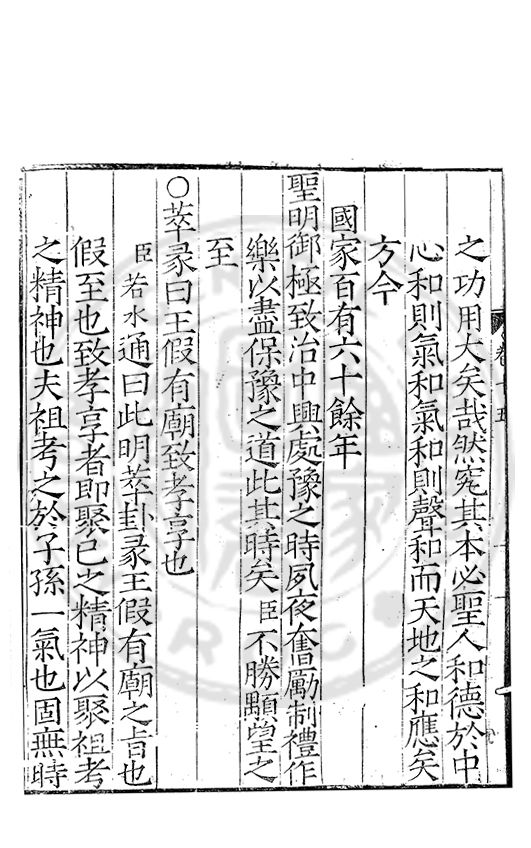 之功用大矣哉然究其本必聖人和德於中
心和則氣和氣和則聲和而天地之和應矣
方今
國家百有六十餘年
聖明御極致治中興處豫之時夙夜奮勵制禮作
樂以盡保豫之道此其時矣臣不勝顒望之
至
○萃彖曰王假有廟致孝享也
臣若水通曰此明萃卦彖王假有廟之旨也
假至也致孝享者即聚已之精神以聚祖考
之精神也夫祖考之於子孫一氣也固無時